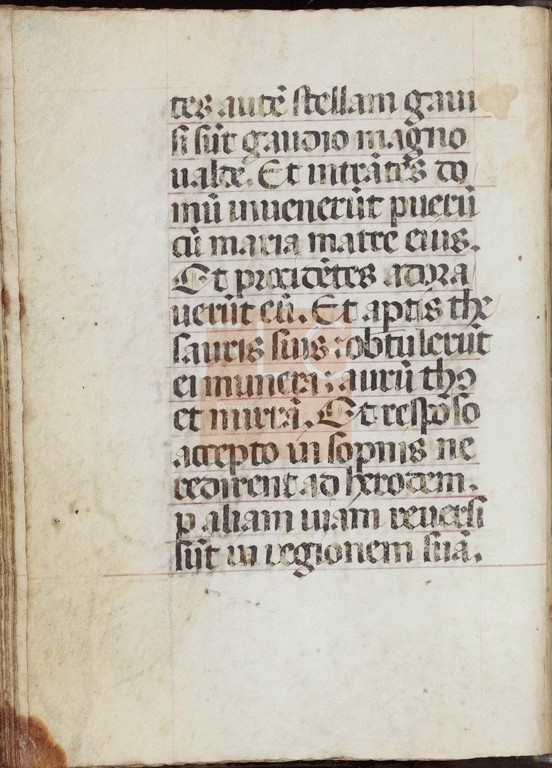 tes autē stellam gaui
si sūt gaudio magno
ualde. Et intrātēs do
mū inuenerūt puerū
cū maria matre eius.
Et procidētes adora
uerūt eū. Et aptis the
sauris suis : obtulerūt
ei munera : aurū thꝯ
et mirrā. Et respōso
accepto in sopnis ne
redirent ad herodem.
p aliam uiam reuersi
sūt in regionem suā.